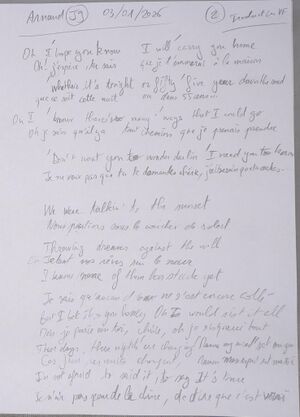 Armand J9 03/01/2026 2 Traduction VF
Oh I hope you know I will carry you home
Oh j'espère tu sais que je t'emmènerai à la maison
Whether it's tonight or fifty five years down the road
que ce soit cette nuit ou dans 55 ans
Oh I know there's so many ways that I could go
Oh je sais qu'il y a tout chemins que je pourrais prendre
Don't want you to wonder darlin' I need you to know
Je ne veux pas que tu te demandes chérie, j'ai besoin que tu saches
We were talkin' to the sunset
Nous parlions avec le coucher de soleil
Throwing dreams against the wall
En jetant nos rêves sur le mur
I know none of them has stuck yet
Je sais qu'aucun d'eux ne s'est encore collé
But I bet it's you honey Oh I'd risk it all
je parie toi, chérie, oh je risquerais tout
These days, these nights are changing
Ces jours, ces nuits changent
I'm not afraid to said it, to say It's true
Je n'ai pas peur de le dire, de dire que c'est vrai